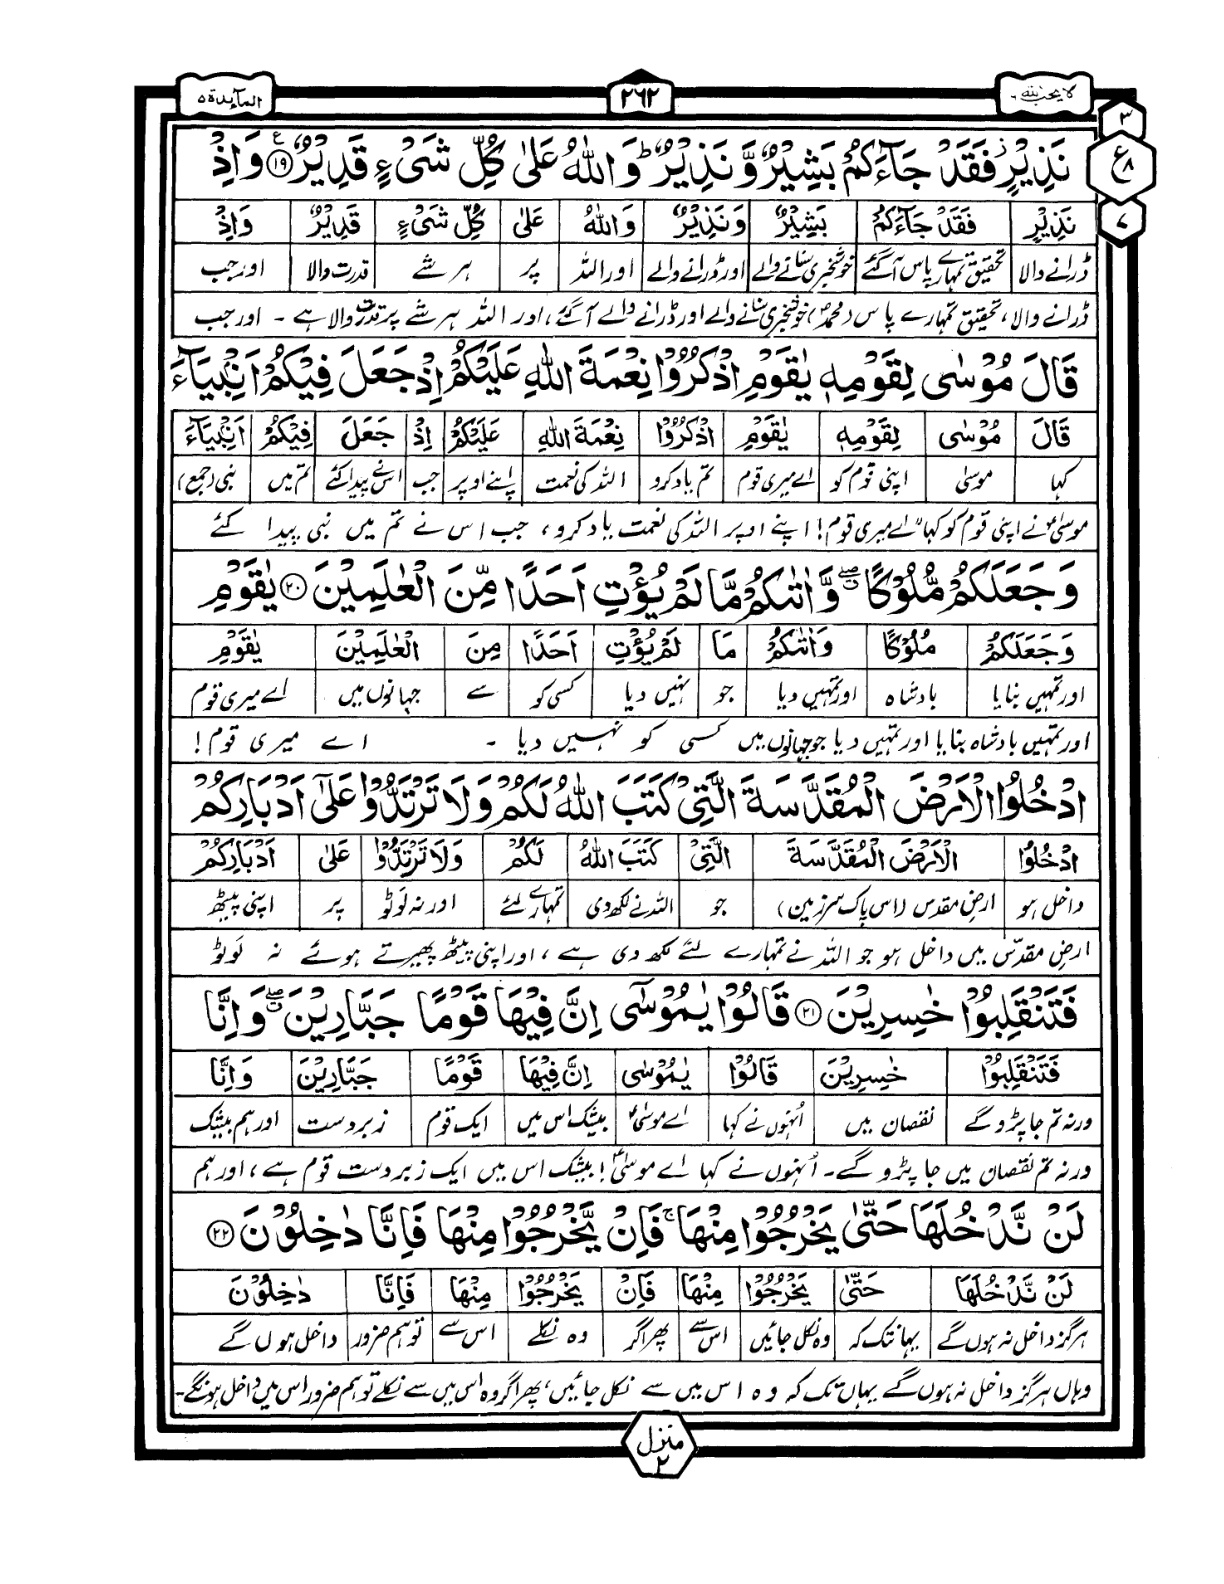 المآئدة ۵
۲۶۲
لا یحب اللہ ۶
۳
ع ۸
۷
نَذِيْرٍ ۫ فَقَدْ جَآءَكُمْ بَشِيْرٌ وَّ نَذِيْرٌ ؕ وَاللّٰهُ عَلٰى كُلِّ شَىْءٍ قَدِيْرٌ ﴿۱۹﴾ ع وَ اِذْ
نَذِيْرٍ | فَقَدْ جَآءَكُمْ | بَشِيْرٌ | وَ نَذِيْرٌ | وَاللّٰهُ | عَلٰى | كُلِّ شَىْءٍ | قَدِيْرٌ | وَاِذْ
ڈرانے والا | تحقیق تمہارے پاس آگئے | خوشخبری سنانے والے | اور ڈرانے والے | اور اللہ | پر | ہر شے | قدرت والا | اور جب
ڈرانے والا، تحقیق تمہارے پاس (محمدؐ) خوشخبری سنانے والے اور ڈرانے والے آگئے، اور اللہ ہر شے پر قدرت والا ہے ۔ اور جب
قَالَ مُوْسٰى لِقَوْمِهٖ يٰقَوْمِ اذْكُرُوْا نِعْمَةَ اللّٰهِ عَلَيْكُمْ اِذْ جَعَلَ فِيْكُمْ اَنْۢبِيَآءَ
قَالَ | مُوْسٰى | لِقَوْمِهٖ | يٰقَوْمِ | اذْكُرُوْا | نِعْمَةَ اللّٰهِ | عَلَيْكُمْ | اِذْ | جَعَلَ | فِيْكُمْ | اَنْۢبِيَآءَ
کہا | موسیٰ | اپنی قوم کو | اے میری قوم | تم یاد کرو | اللہ کی نعمت | اپنے اوپر | جب | اس نے پیدا کئے | تم میں | نبی (جمع)
موسیٰؑ نے اپنی قوم کو کہا "اے میری قوم! اپنے اوپر اللہ کی نعمت یاد کرو، جب اس نے تم میں نبی پیدا کئے
وَ جَعَلَكُمْ مُّلُوْكًا ۖۗ وَّ اٰتٰىكُمْ مَّا لَمْ يُؤْتِ اَحَدًا مِّنَ الْعٰلَمِيْنَ ﴿۲۰﴾ يٰقَوْمِ
وَ جَعَلَكُمْ | مُلُوْكًا | وَاٰتٰىكُمْ | مَا | لَمْ يُؤْتِ | اَحَدًا | مِنَ | الْعٰلَمِيْنَ | يٰقَوْمِ
اور تمہیں بنایا | بادشاہ | اور تمہیں دیا | جو | نہیں دیا | کسی کو | سے | جہانوں میں | اے میری قوم
اور تمہیں بادشاہ بنایا اور تمہیں دیا جو جہانوں میں کسی کو نہیں دیا ۔ اے میری قوم!
ادْخُلُوا الْاَرْضَ الْمُقَدَّسَةَ الَّتِىْ كَتَبَ اللّٰهُ لَكُمْ وَلَا تَرْتَدُّوْا عَلٰٓى اَدْبَارِكُمْ
ادْخُلُوا | الْاَرْضَ الْمُقَدَّسَةَ | الَّتِىْ | كَتَبَ اللّٰهُ | لَكُمْ | وَلَا تَرْتَدُّوْا | عَلٰى | اَدْبَارِكُمْ
داخل ہو | ارضِ مقدس (اس پاک سرزمین) | جو | اللہ نے لکھ دی | تمہارے لئے | اور نہ لوٹو | پر | اپنی پیٹھ
ارضِ مقدّس میں داخل ہو جو اللہ نے تمہارے لئے لکھ دی ہے، اور اپنی پیٹھ پھیرتے ہوئے نہ لوٹو
فَتَنْقَلِبُوْا خٰسِرِيْنَ ﴿۲۱﴾ قَالُوْا يٰمُوْسٰٓى اِنَّ فِيْهَا قَوْمًا جَبَّارِيْنَ ۖۗ وَ اِنَّا
فَتَنْقَلِبُوْا | خٰسِرِيْنَ | قَالُوْا | يٰمُوْسٰى | اِنَّ فِيْهَا | قَوْمًا | جَبَّارِيْنَ | وَ اِنَّا
ورنہ تم جا پڑو گے | نقصان میں | اُنہوں نے کہا | اے موسیٰؑ | بیشک اس میں | ایک قوم | زبردست | اور ہم بیشک
ورنہ تم نقصان میں جا پڑو گے ۔ اُنہوں نے کہا اے موسیٰؑ! بیشک اس میں ایک زبردست قوم ہے، اور ہم
لَنْ نَّدْخُلَهَا حَتّٰى يَخْرُجُوْا مِنْهَا ۚ فَاِنْ يَّخْرُجُوْا مِنْهَا فَاِنَّا دٰخِلُوْنَ ﴿۲۲﴾
لَنْ نَّدْخُلَهَا | حَتّٰى | يَخْرُجُوْا | مِنْهَا | فَاِنْ | يَخْرُجُوْا | مِنْهَا | فَاِنَّا | دٰخِلُوْنَ
ہرگز داخل نہ ہوں گے | یہانتک کہ | وہ نکل جائیں | اس سے | پھر اگر | وہ نکلے | اس سے | تو ہم ضرور | داخل ہوں گے
وہاں ہرگز داخل نہ ہوں گے یہاں تک کہ وہ اس میں سے نکل جائیں، پھر اگر وہ اس میں سے نکلے تو ہم ضرور اس میں داخل ہونگے۔
منزل ۲